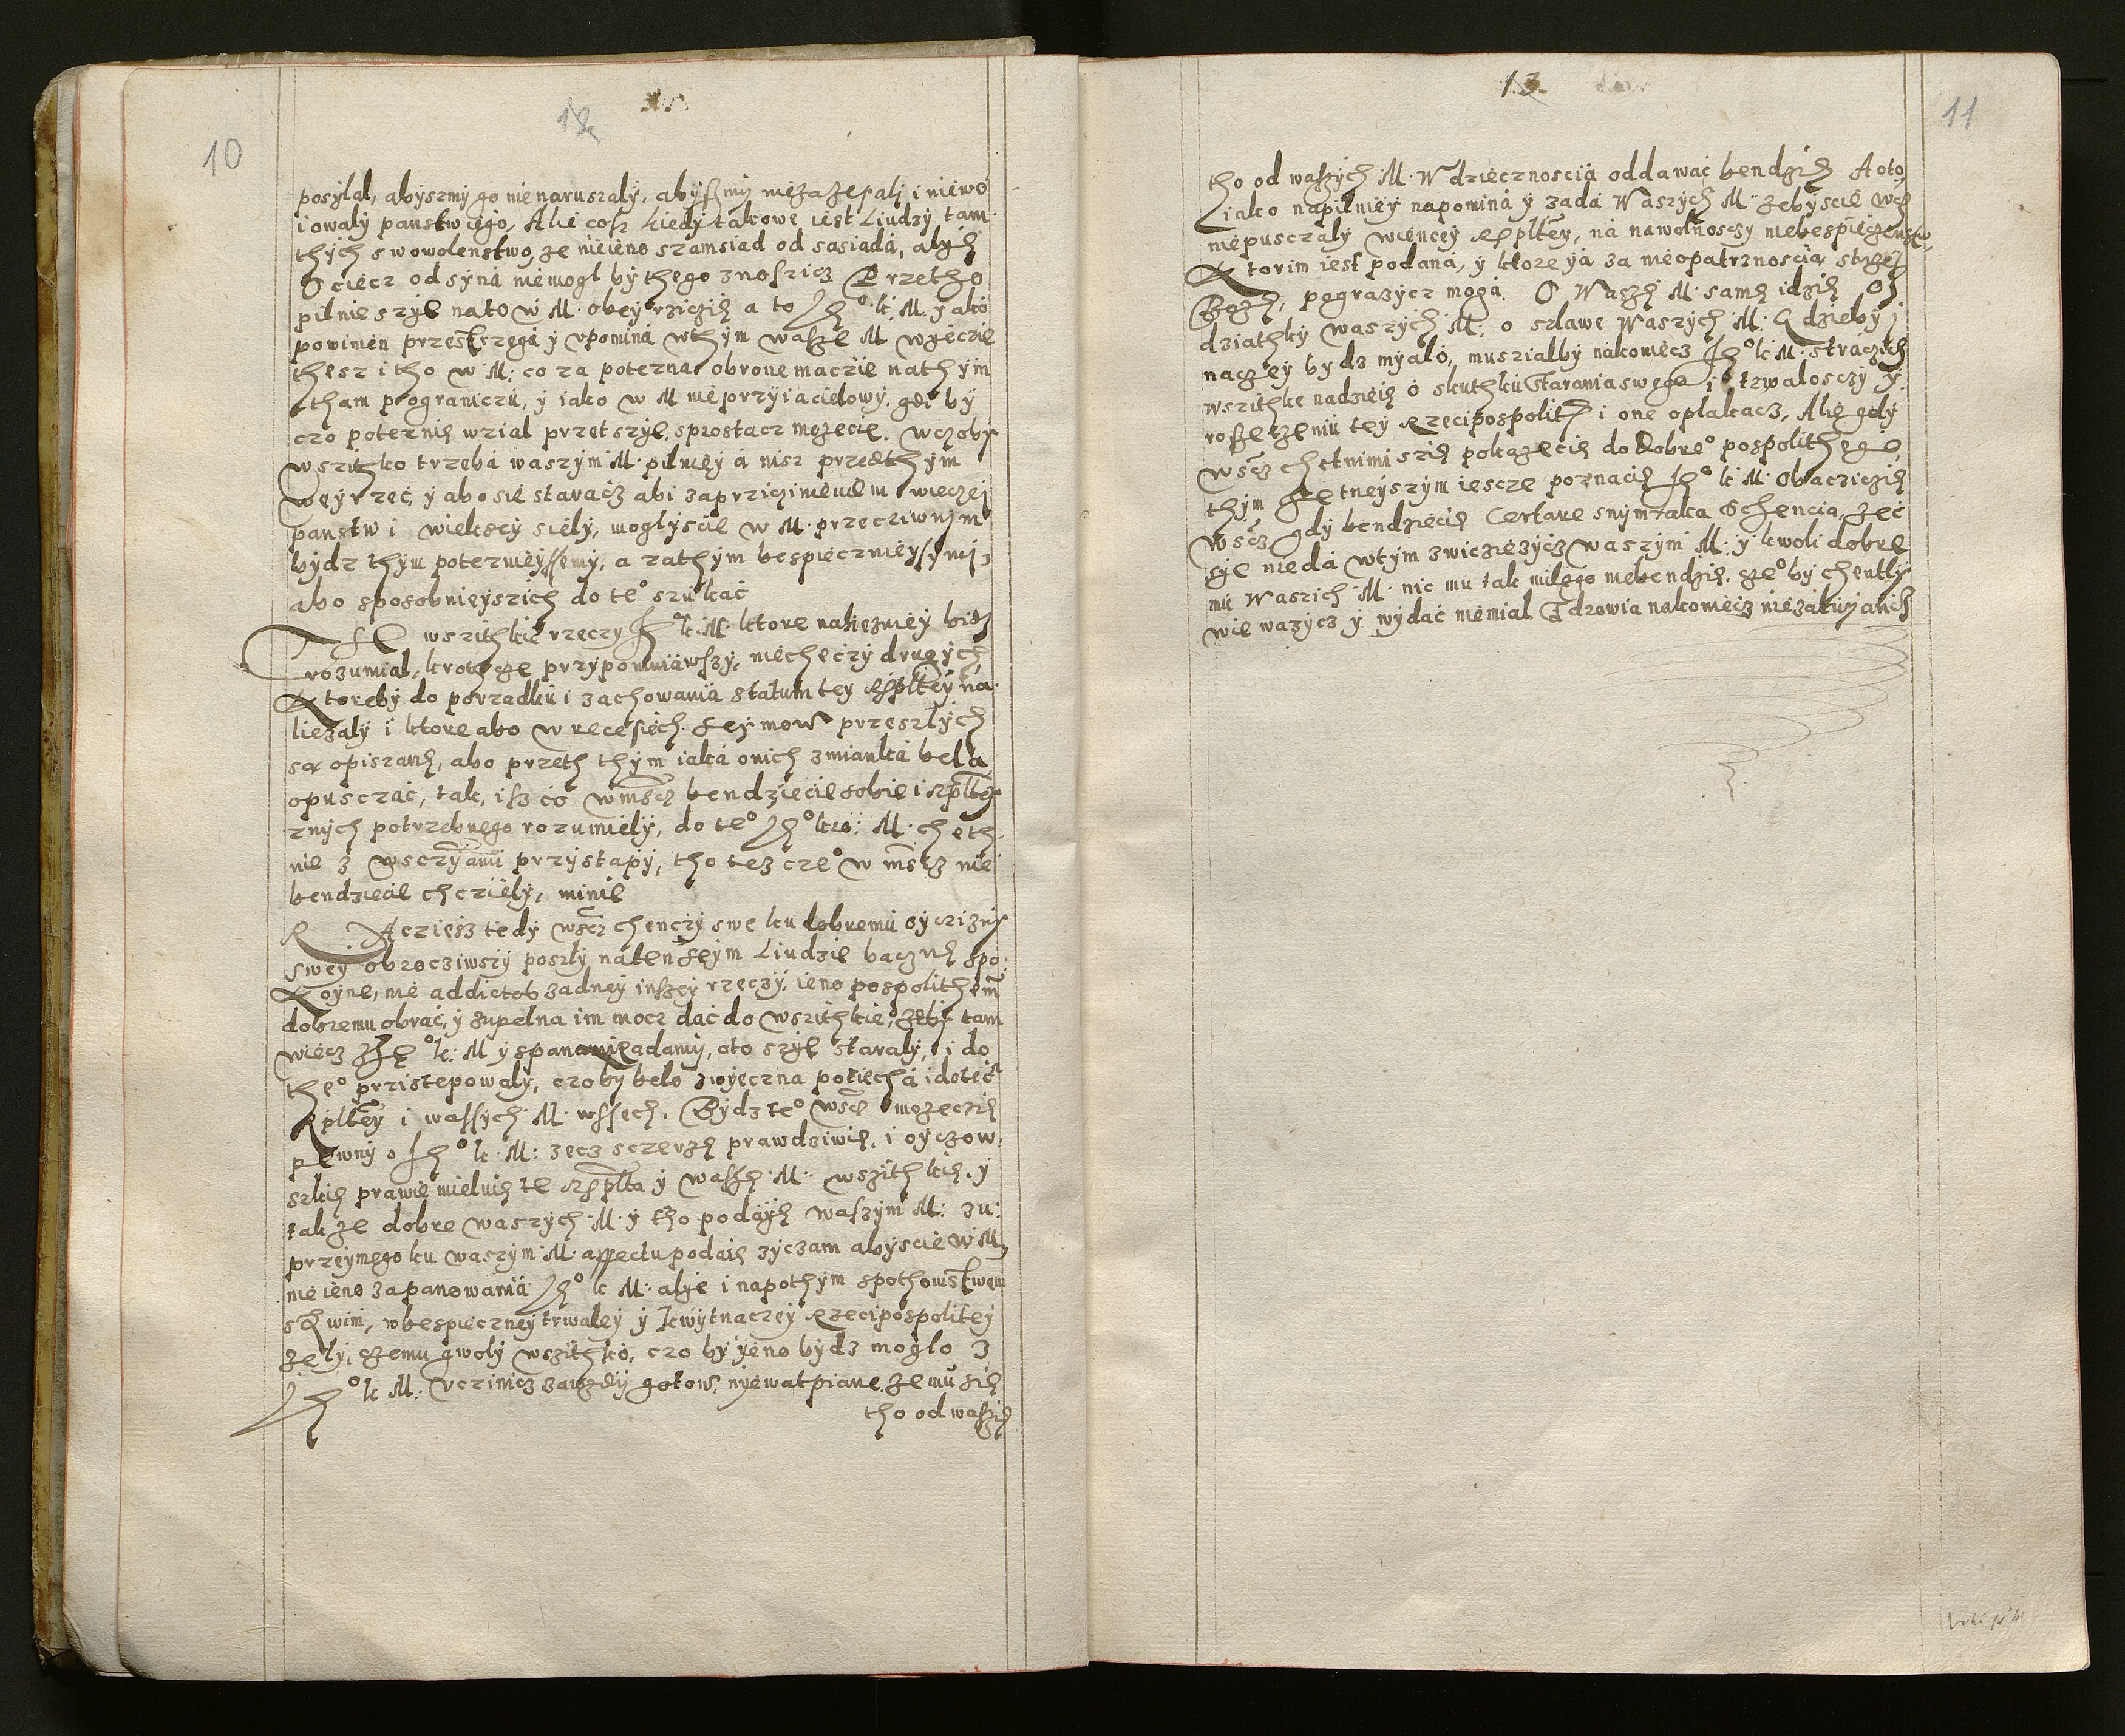 10
12
posÿlal, abÿszmÿ go nie naruszalÿ, abÿszmÿ niezazepali i niewo
iowalÿ panstw iego, Alie cosz kiedÿ takowe iest Liudzÿ tam
thÿch swowolenstwo, ze nieieno szamsiad od sasiada, alÿe
Ociecz od sÿna niemogl bÿ thego znoszicz Przetho
pilnie szÿe nato w M. obeÿrziczie a to Je° k. M. ÿako
powinien przestrzega ÿ upomina wthÿm wasze M wyeczie
thesz i tho w M: co za poterna obrone maczie nathÿm
tham pograniczu, ÿ iako w M nieprzÿiacielowÿ. gdi bÿ
czo poternie wzial przet szÿe sprostacz mozecie. Wczobÿ
Wszithko trzeba waszÿm M. pilnieÿ a nisz przedthÿm
weÿrzec, ÿ abo sie staracz abi zaprziczinieniem wieczeÿ
panstw i wiekseÿ sielÿ, moglÿscie w M. przecziwnym
bÿdz thÿm poternieÿssemÿ, a zathÿm bespiecznieÿsÿmi,
abo sposobnieÿszich do te° szukac
TE wszithkie rzeczÿ Je° k. M. ktore nalieznieÿ bidz
rozumial, krotcze przÿpomniawszÿ, niecheczÿ drugÿch
Ktorebÿ do porzadku i zachowania statum teÿ Rsplteÿ na
liezalÿ i ktore abo w recesiech seÿmow przeszlÿch
sa opiszane, abo przeth thÿm iaka onich zmianka bela
opusczac, tak, isz co wmscz bendziecie sobie i Rspltej
znÿch potrzebnego rozumielÿ, do te° Je° kro: M. cheth
nie z wsczÿami przÿstapÿ, tho tez cze° w mscz nie
bendziecie chczielÿ, minie
R Acziesz tedÿ wscz chenczÿ swe ku dobremu oÿcziznÿ
sweÿ obrocziwszÿ poszlÿ naten seÿm Liudzie baczne spo
Koÿne, nie addictos zadneÿ inszeÿ rzeczÿ, ieno pospolithem
dobremu obrac, ÿ zupelna im mocz dac do wszithkie°, zebÿ tam
wiecz zJe °k: M ÿ spanamiRadamÿ, oto szÿe staralÿ, i do
the° przistepowalÿ, czobÿ belo zwÿeczna potiecha idotec
Rplteÿ i wassÿch M. wssech. Bÿdz te° wscz mozeczie
pewnÿ o Je° k. M: zecz sczerze prawdziwie, i oÿczow
szkie prawie mielnie te Rsplta ÿ wasze M. wszithkie ÿ
takze dobre waszÿch M. ÿ tho podaÿe waszÿm M: zu:
przeÿmego ku waszÿm M. affectu podaie zÿczam abÿscie w M,
nie ieno zapanowania Je° k M. alÿe i napothÿm spothomstwem
swim, wbespieczneÿ trwaleÿ ÿ kwÿtnaczeÿ Rzecipospoliteÿ
zelÿ, czemu gwolÿ wszithko, czo bÿ ÿeno bÿdz moglo z
Je° k M. uczinicz zawzdÿ gotow, nÿewatpiane zemu sie
tho od waszich
13
11
tho od waszÿch M. Wdziecznoscia oddawac bendzie Aoto,
iako napilnieÿ napomina ÿ zada Waszÿch M. zebÿscie wcz
niepusczalÿ wienceÿ Rsplteÿ, na nawolnosczÿ niebespieczenstw,
Ktorim iest podana, ÿ ktore ÿa za nieopatrznoscia
Boze, pograzÿcz moga. O Wasze M. same idzie oÿ
dziathkÿ waszÿch M: o szlawe Waszÿch M. Gdziebÿ i
naczeÿ bÿdz mÿalo, muszialbÿ nakoniecz Je° k M. straczich
wszithke nadzieie o skuthku starania swego i° trwalosczÿ ÿ
roszerzeniu teÿ Rzecipospolite i one oplakacz, Alie gdÿ
wscz chetnimi szie pokazecie do dobre° pospolithego,
thÿm chetneÿszÿm iescze poznacie Je° k M. Obacziczie
wscz gdÿ bendziecie Certare snÿm taka Chencia, zec
sÿe nieda wtÿm zwiczieżÿcz waszÿm M. ÿ kwoli dobre
mu Waszich M. nic mu tak milego niebendzie. cze° bÿ chentlÿ
wie wazÿcz ÿ wÿdac niemial Zdrowia nakoniecz niezaluiancz